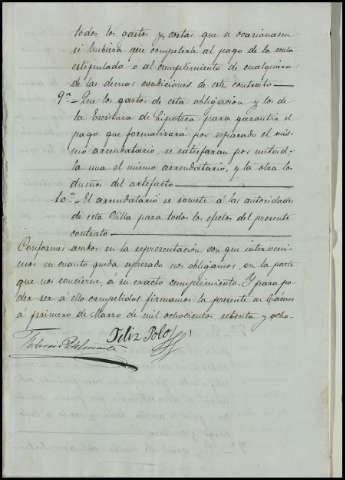 todos los gastos y costas que se ocasionasen
si hubiera que competirle al pago de la renta
estipulada o al cumplimiento de cualquiera
de las demas condiciones de este contrato
9ª Que los gastos de esta obligacion y los de
la Escritura de Hipoteca para garantir el
pago que formalizará por separado el mis-
mo arrendatario, se satisfaran por mitad:
la una el mismo arrendatario, y la otra los
dueños del artefacto
10ª El arrendatario se somete á las autoridades
de esta Villa para todos los efectos del presente
contrato
Conformes ambos en la representacion con que interveni-
mos en cuanto queda espresado nos obligamos, en la parte
que nos concierne, á su exacto cumplimiento. Y para po-
der ser á ello compelidos firmamos la presente en
á primero de Marzo de mil ochocientos setenta y ocho
Feliz Polo